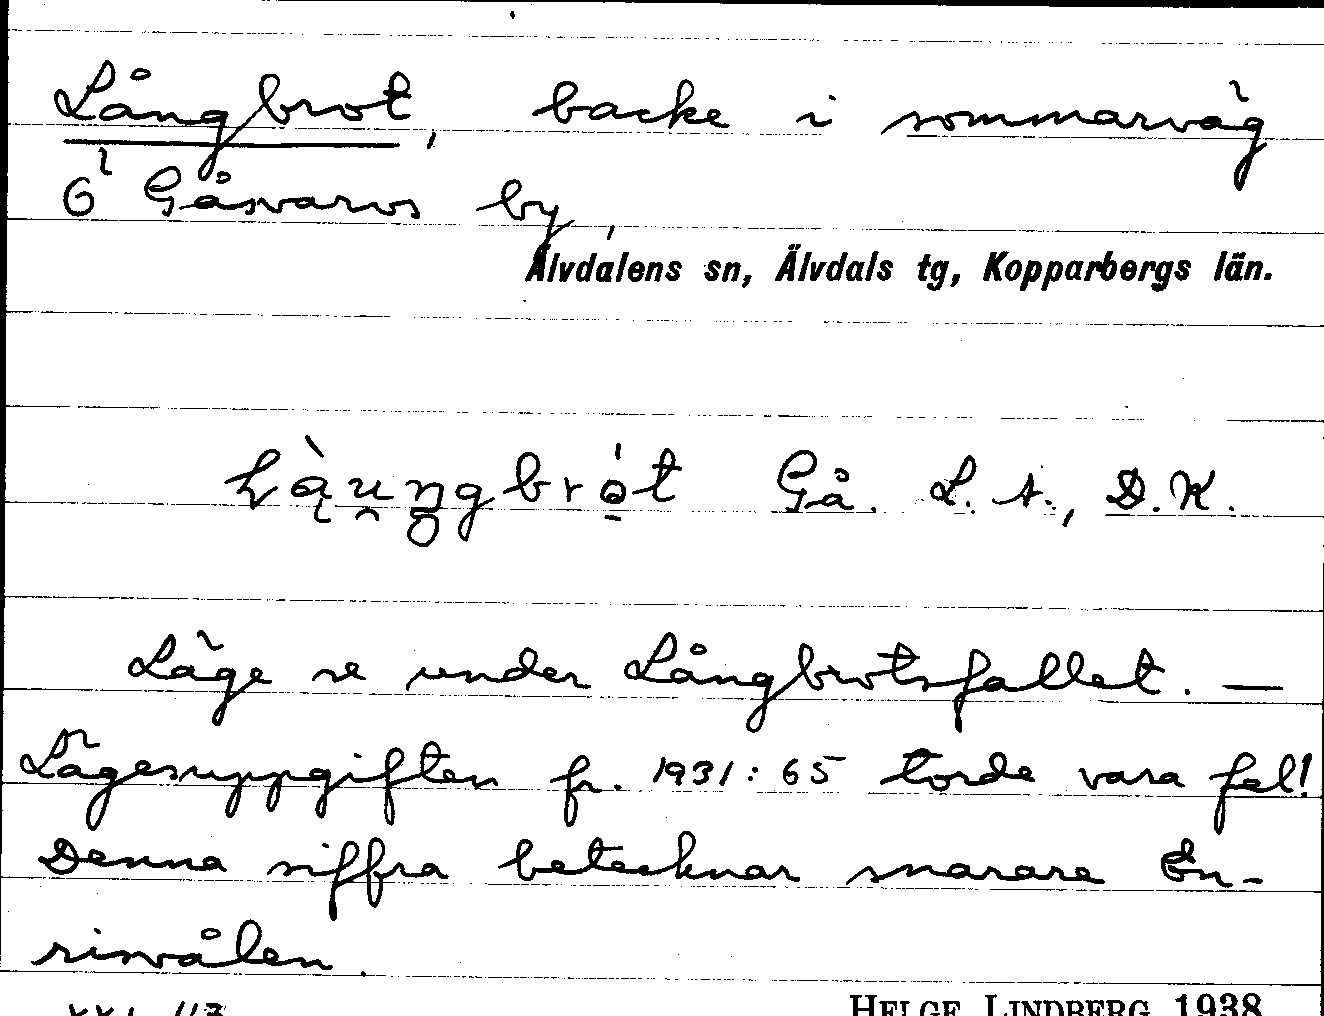 Långbrot, backe i sommarväg
Ö Gåsvarvs by,
Älvdalens sn, Älvdals tg, Kopparbergs län.
Gå. L. A., D. K.
Läge se under Långbrotsfallet. —
Lägesuppgiften fr. 1931: 65 torde vara fel!
Denna siffra betecknar snarare En-
risvålen.
HELGE LINDBERG 1938